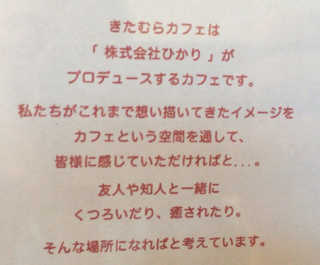 きたむらカフェは
「 株式会社ひかり 」が
プロデュースするカフェです。
私たちがこれまで想い描いてきたイメージを
カフェという空間を通して、
皆様に感じていただければと...。
友人や知人と一緒に
くつろいだり、癒されたり。
そんな場所になればと考えています。